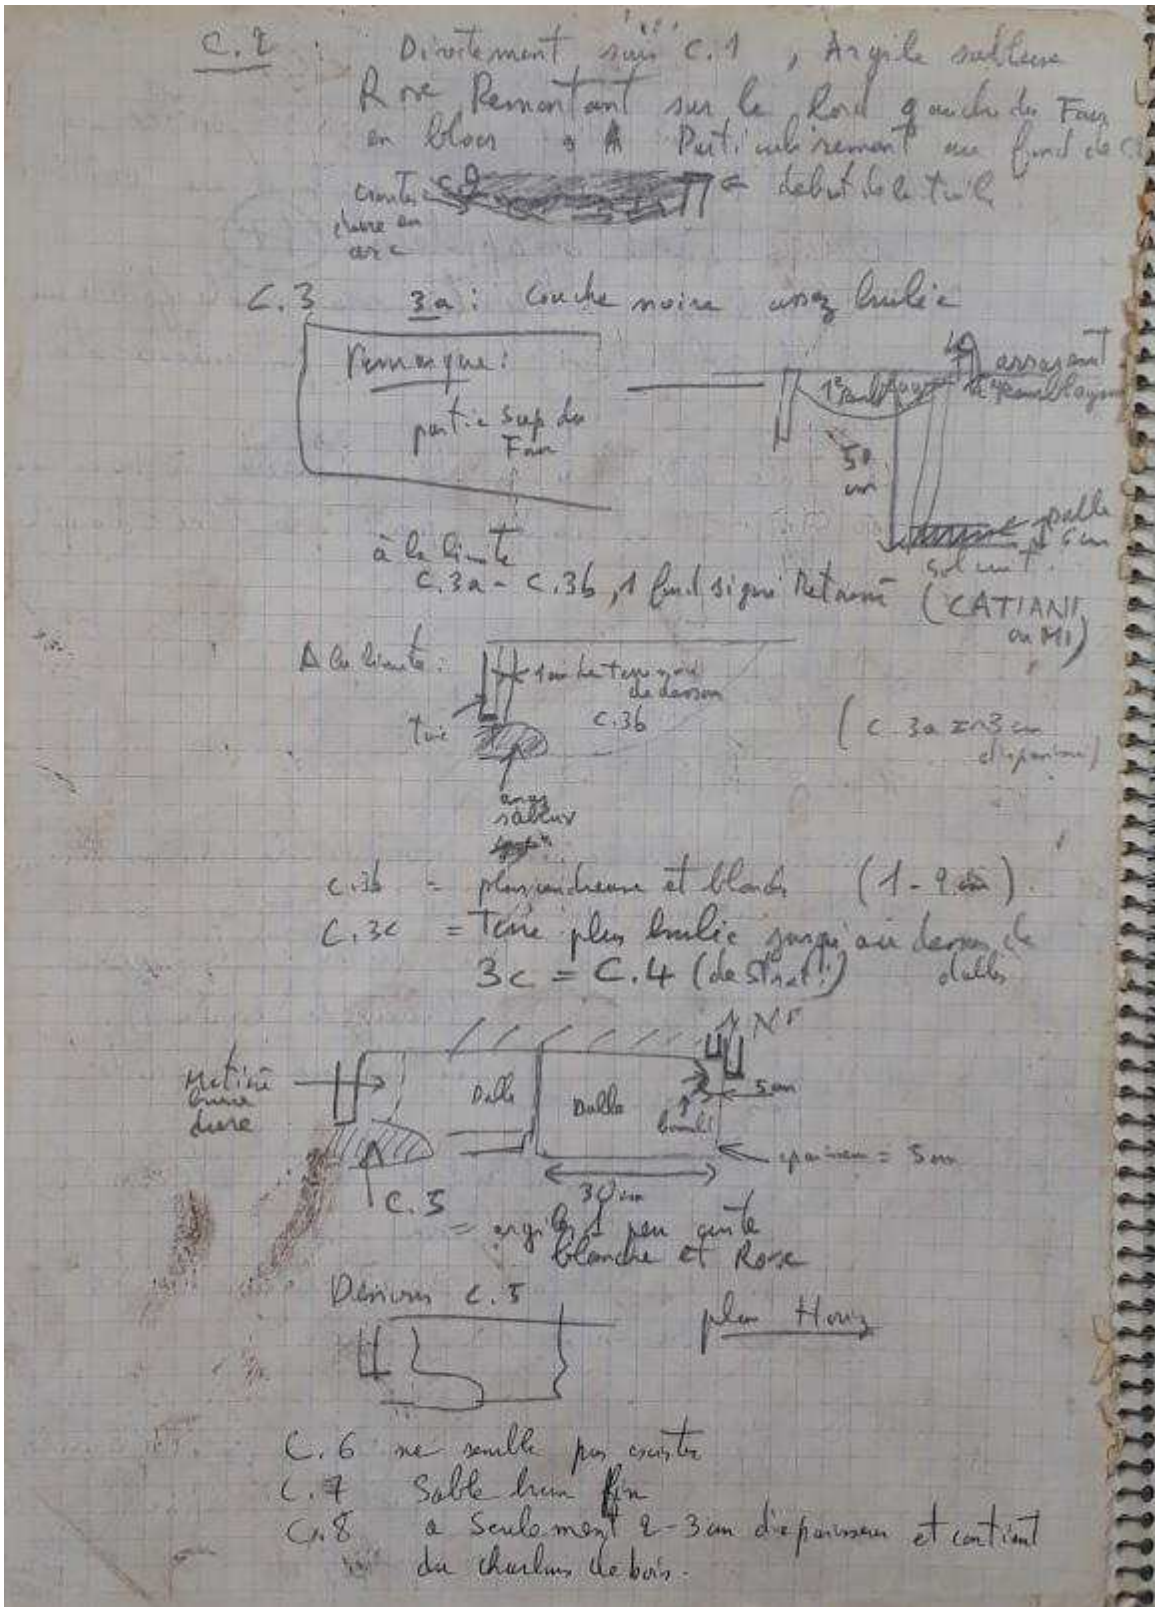 C.2 : Directement sur C.1, Argile sableuse
Rose Remontant sur le bord gauche du Four
en blocs Particulièrement au fond de C
croute dure en arc
← debut de la tuile
C.3 3a : Couche noire assez brulée
remarque :
partie Sup du Four
1er
arrasant
le remblayage
50 cm
dalle
5 cm
sol cuit.
à la limite
C.3a - C.3b, 1 fond signé Retourné (CATIANI
ou MI)
A la limite :
1 cm de terre
C.3b
(C.3a = 3 cm
d'épaisseur)
assez sableux
C.3b = plus cendreuse et blonde (1-2 cm).
C.3c = Terre plus brulée jusqu'au dessus de
dalles
3c = C.4 (de Strati)
Matière
brune
dure
Dalle
Dalle
bombé
5 cm
← epaisseur = 5 cm
30 cm
C.5
= argile 1 peu cuite
blanche et Rose
Dessous C.5
plan Horiz
C.6 ne semble pas exister
C.7 Sable brun fin
C.8 a Seulement 2-3 cm d'epaisseur et contient
du charbons de bois.